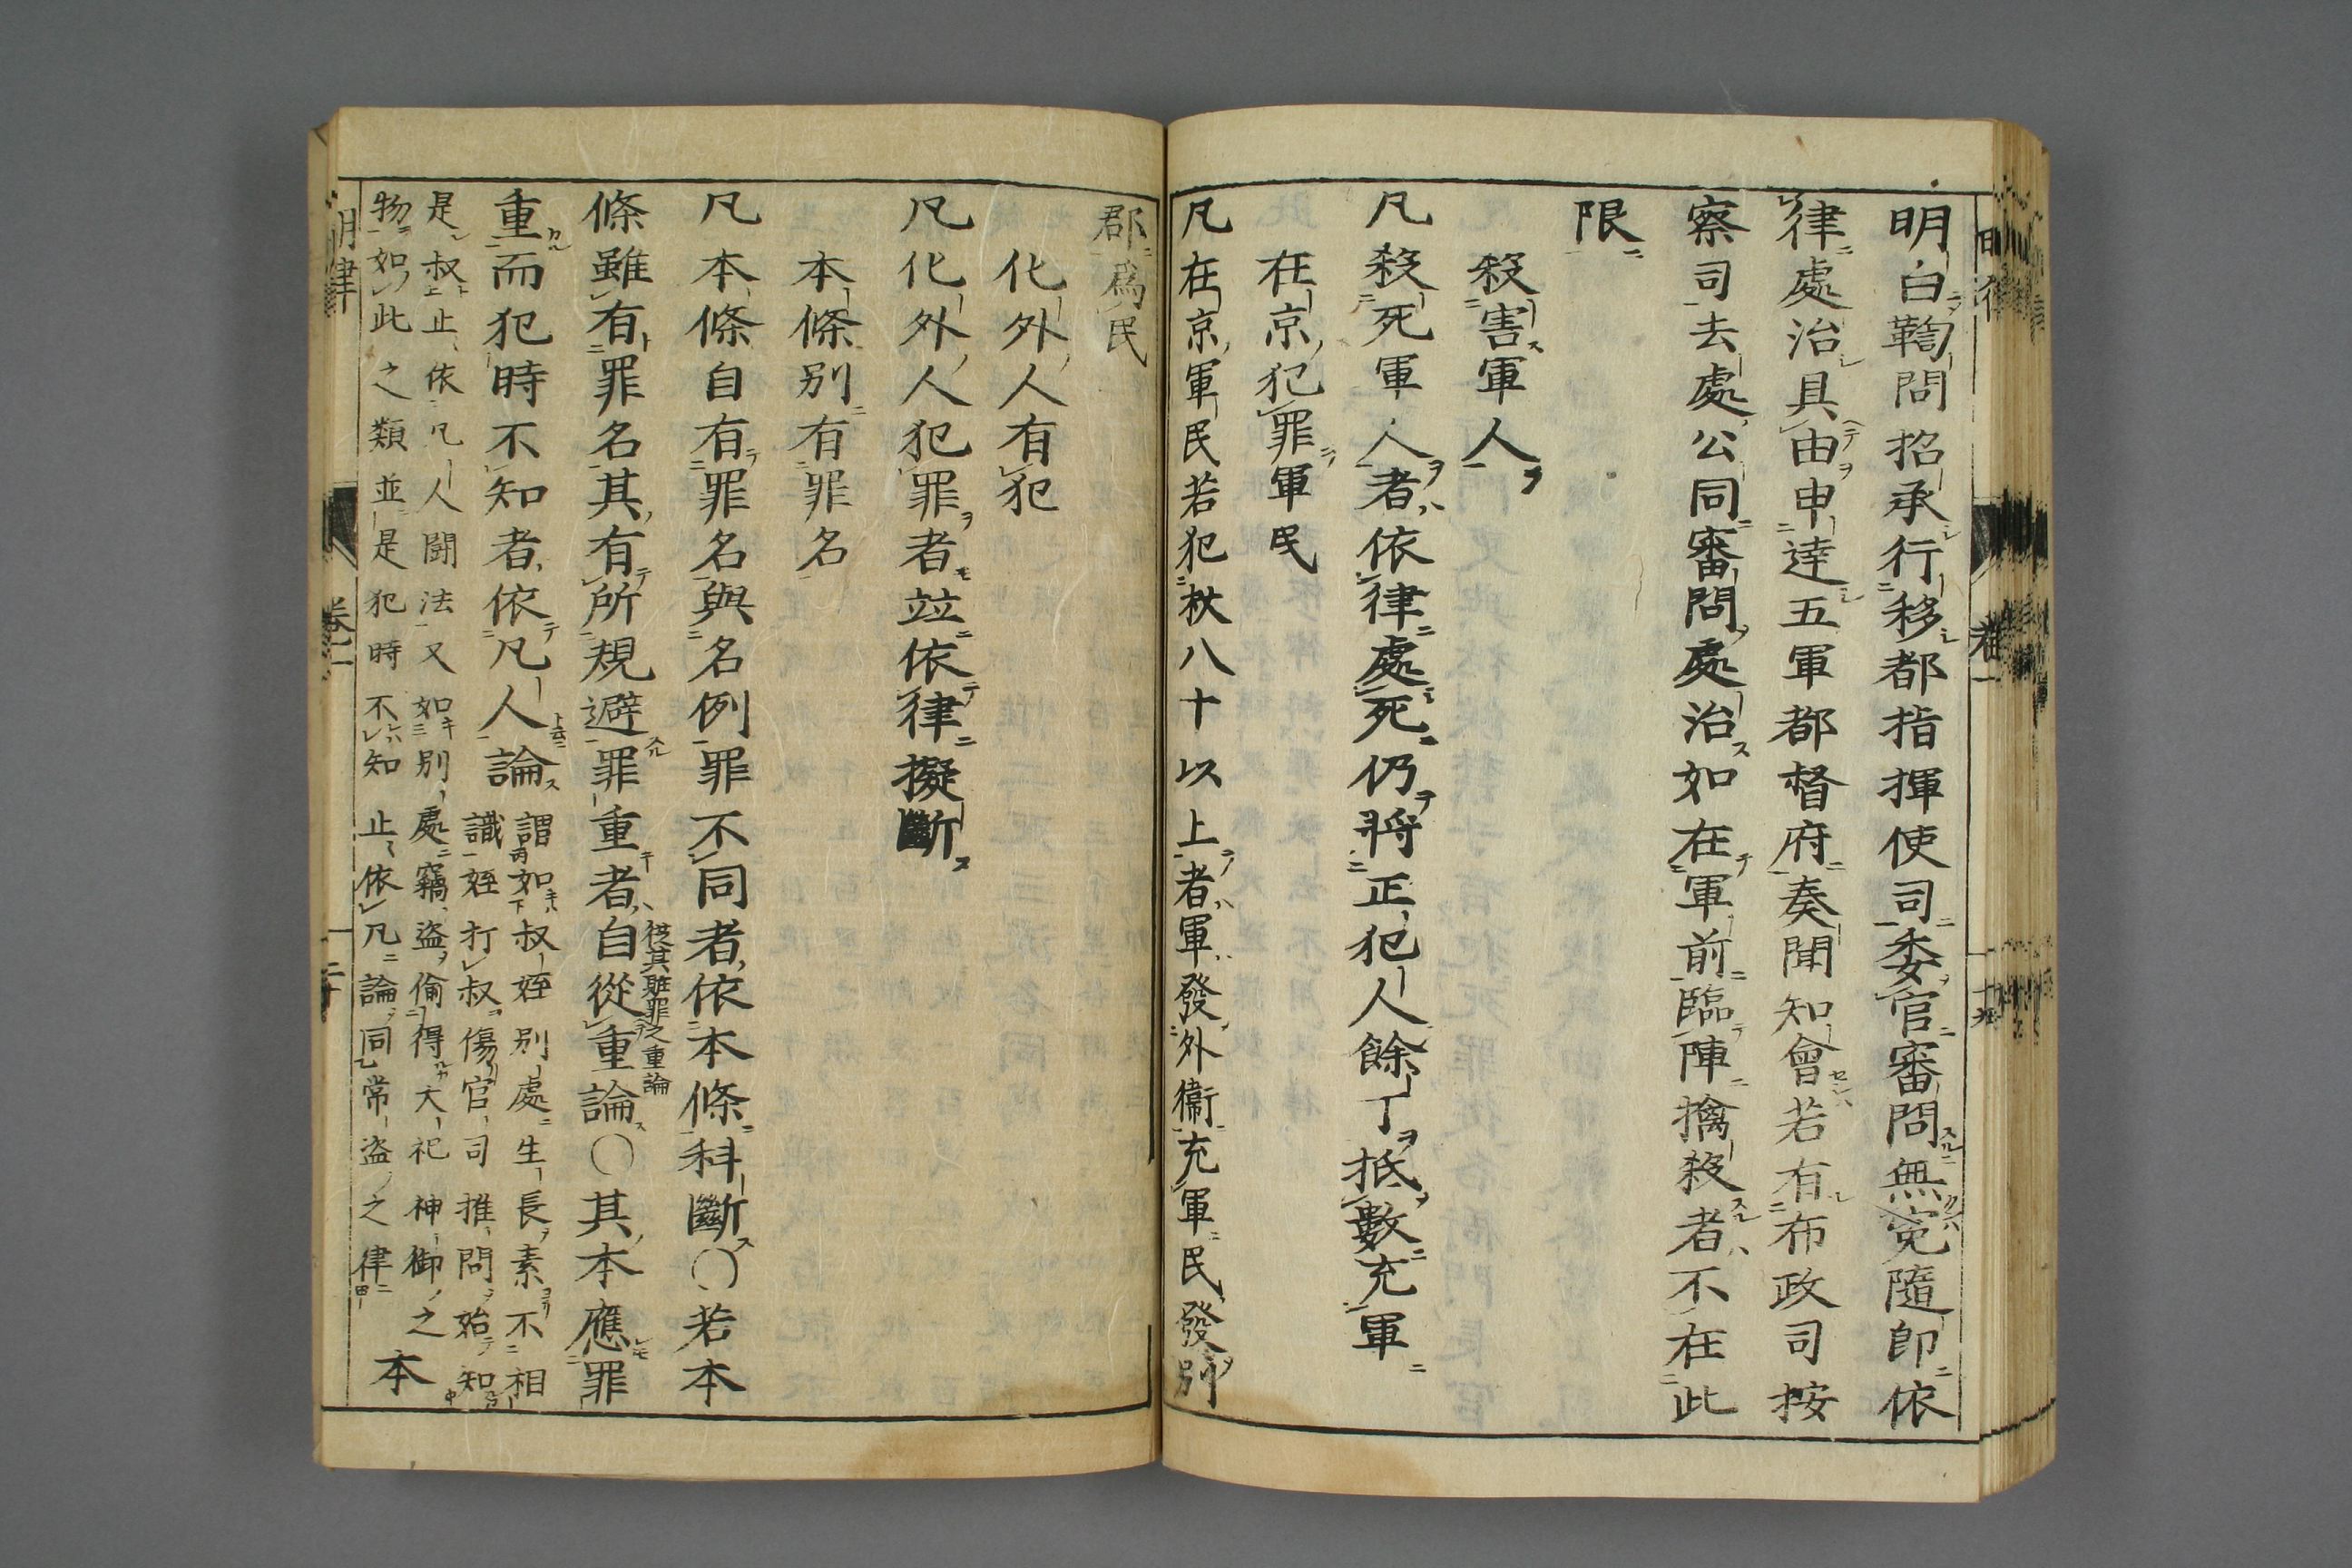 明白鞫問招承行移都指揮使司委官審問無寃隨卽依
律處治具由申達五軍都督府奏聞知會若有布政司按
察司去處公同審問處治如在軍前臨陣擒殺者不在此
限
殺害軍人
凡殺死軍人者依律處死仍將正犯人餘丁抵數充軍
在京犯罪軍民
凡在京軍民若犯杖八十以上者軍發外衞充軍民發別
郡爲民
化外人有犯
凡化外人犯罪者竝依律擬斷
本條別有罪名
凡本條自有罪名與名例罪不同者依本條科斷〇若本
條雖有罪名其有所規避罪重者自從重論〇其本應罪
從其賍罪之重論
重而犯時不知者依凡人論
謂如叔姪別處生長素不相
識姪打叔傷官司推問始知
是叔止依凡人鬪法又如別處竊盜偷得大祀神御之
物如此之類並是犯時不知止依凡論同常盜之律
本
明律
卷一
二十